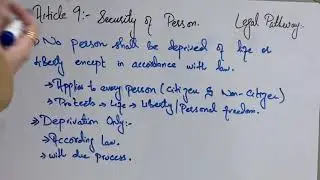 Article 9:- Security of Person. Legal Pathway:-
→ No person shall be deprived of life or
liberty except in accordance with law.
→ Applies to every person (Citizen & Non-citizen)
→ Protects → Life → Liberty/Personal freedom.
→ Deprivation Only:-
→ According law.
→ with due process.